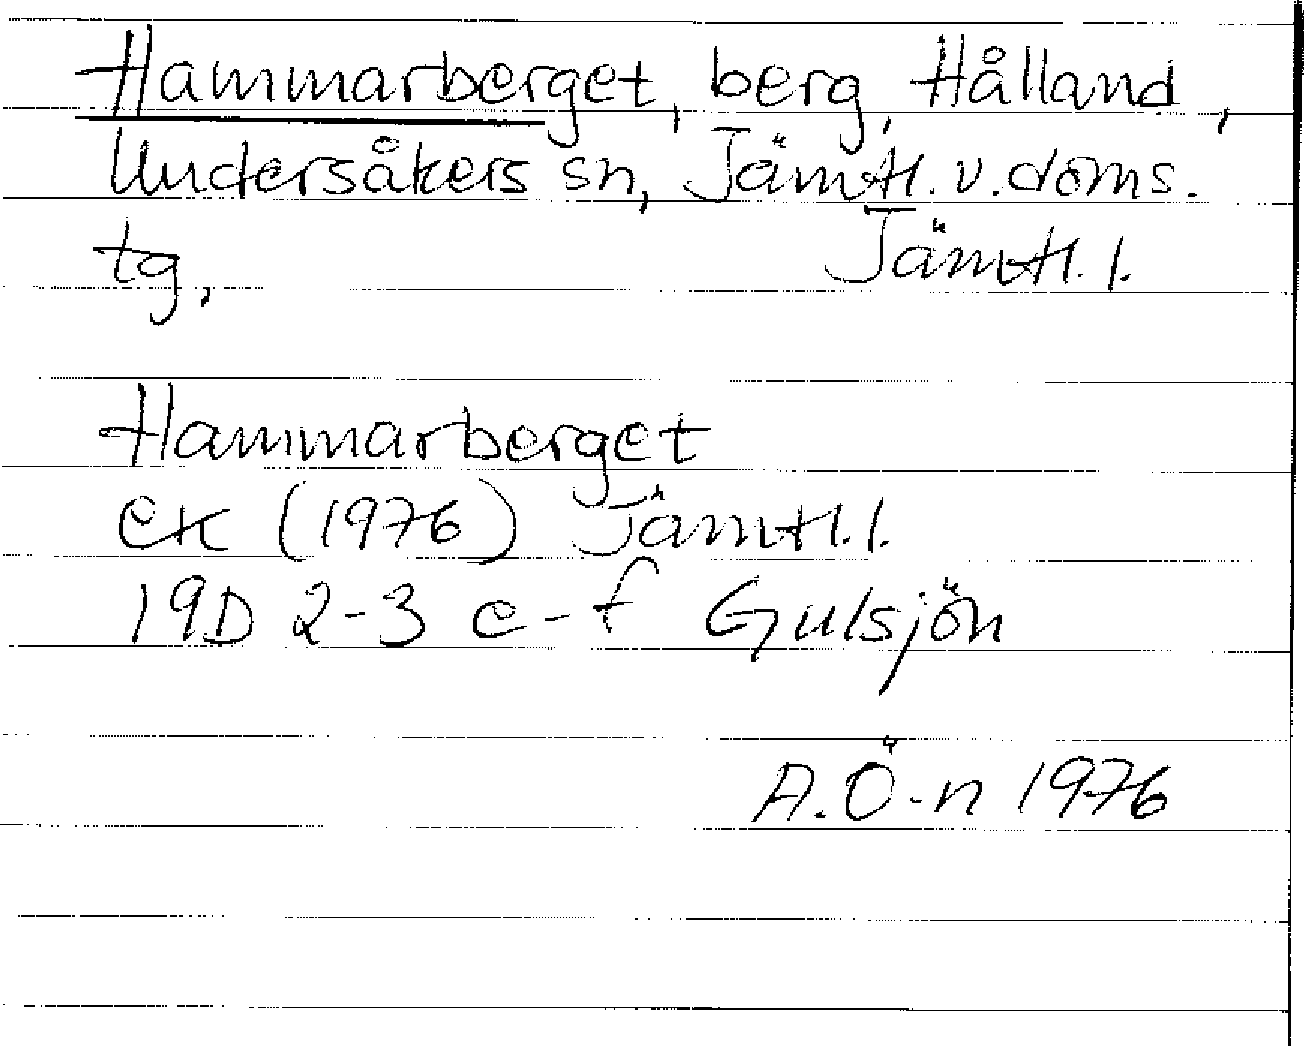 Hammarberget, berg, Hålland,
Undersåkers sn, Jämtl. v. doms.
tg, Jämtl. l.
Hammarberget
ek (1976) Jämtl. l.
19D 2-3 e-f Gulsjön
A. Ö-n 1976